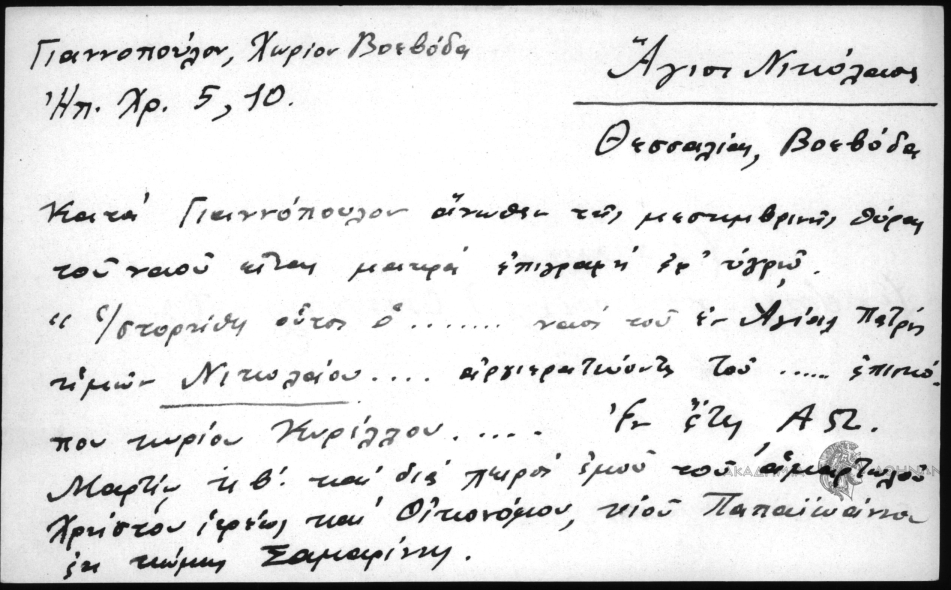 Γιαννοπούλου, Χωρίον Βοεβόδα
Ἠπ. Χρ. 5, 10.
Ἅγιος Νικόλαος
Θεσσαλίας, Βοεβόδα
Κατά Γιαννόπουλον ἄνωθεν τῆς μεσημβρινῆς θύρας
τοῦ ναοῦ εἶναι μακρά ἐπιγραφή ἐφ' ὑγρῷ.
“ Ἱστορήθη οὗτος ὁ ........ ναός τοῦ ἐν Ἁγίοις Πατρός
ἡμῶν Νικολάου .... ἀρχιερατεύοντος τοῦ ..... ἐπισκό-
που κυρίου Κυρίλλου ..... Ἐν ἔτει
Μαρτίῳ κβ'. καί διά χειρός ἐμοῦ τοῦ ἁμαρτωλοῦ
Χρήστου ἱερέως καί Οἰκονόμου, υἱοῦ Παπαϊωάννου
ἐκ κώμης Σαμαρίνης.
ΑΚΑΔΗΜΙΑ ΑΘΗΝΩΝ